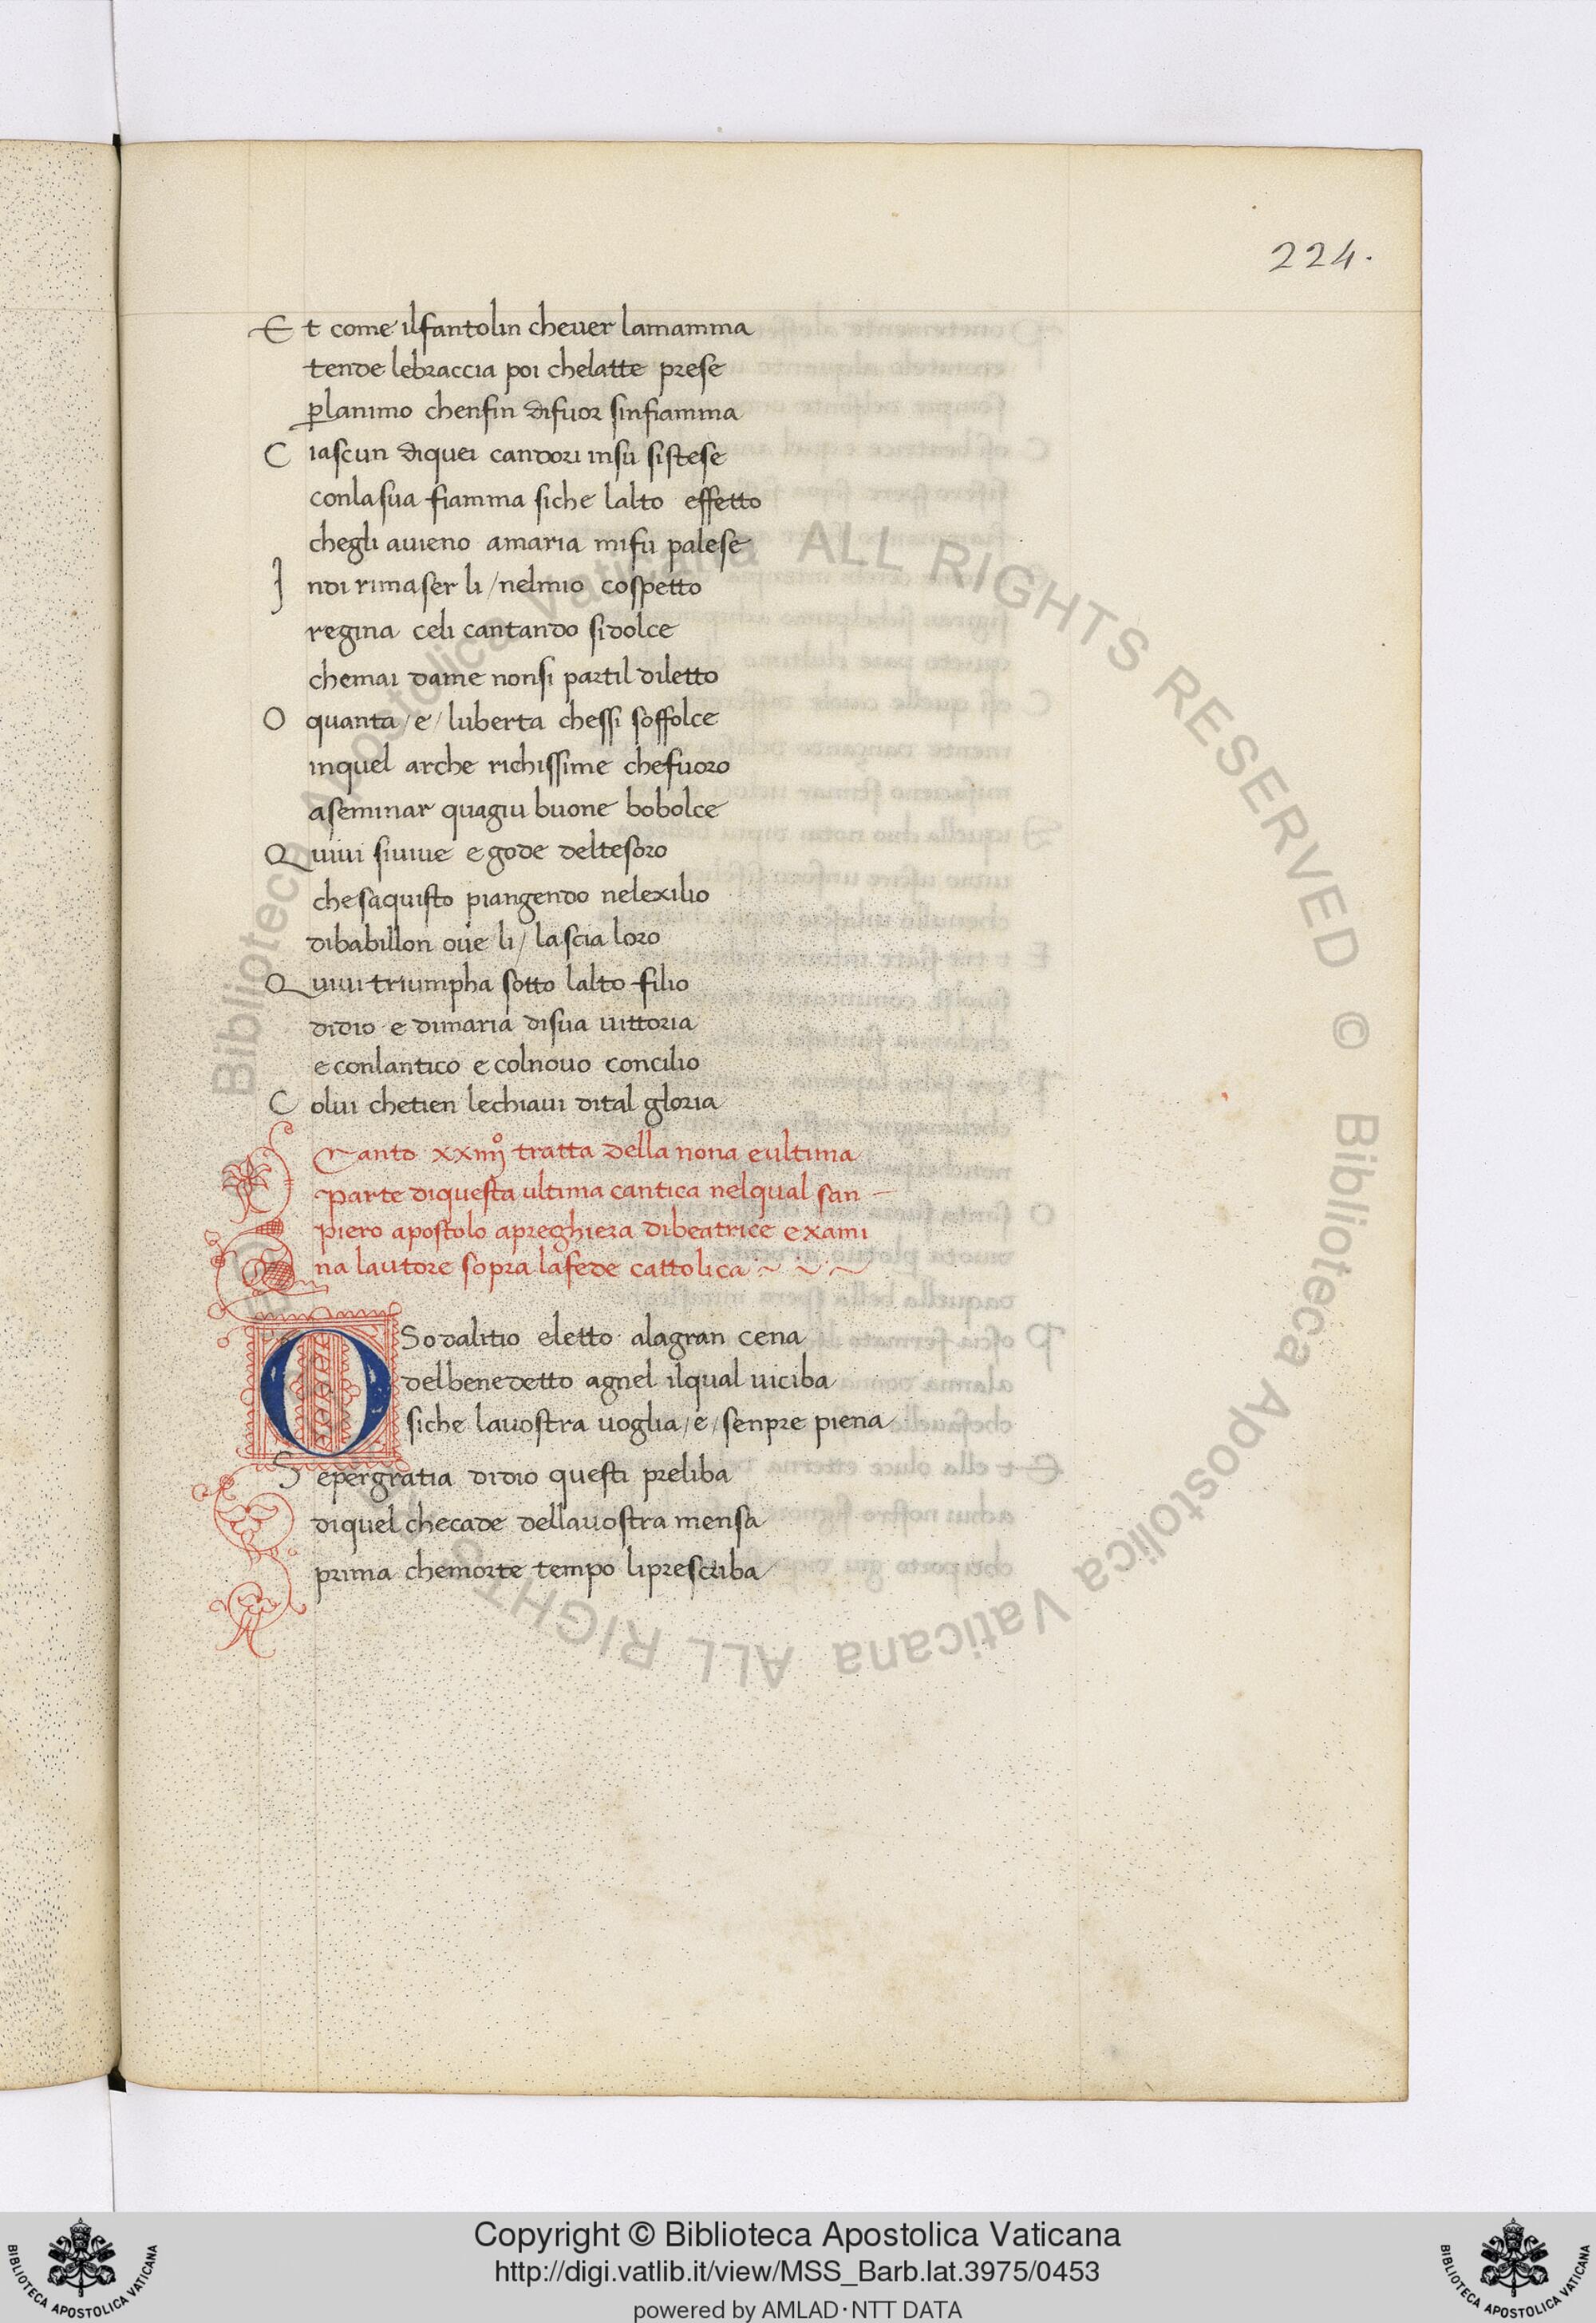 224.
Et come ilfantolin cheuer lamamma
tende lebraccia poi chelatte prese
ꝑlanimo chenfin difuor sinfiamma
Ciascun diquei candori insu sistese
conlasua fiamma siche lalto effetto
chegli auieno amaria mifu palese
Indi rimaser li / nelmio cospetto
regina celi cantando sidolce
chemai dame nonsi partil diletto
O quanta / e / luberta chessi soffolce
inquel arche richissime chefuoro
aseminar quagiu buone bobolce
Quiui siuiue e gode deltesoro
chesaquisto piangendo nelexilio
dibabillon oue li / lascia loro
Quiui triumpha sotto lalto filio
didio e dimaria disua uittoria
e conlantico e colnouo concilio
Colui chetien lechiaui dital gloria
Canto xxiiijº tratta della nona eultima
parte diquesta ultima cantica nelqual san
piero apostolo apreghiera dibeatrice exami
na lautore sopra lafede cattolica
O Sodalitio eletto alagran cena
delbenedetto agnel ilqual uiciba
siche lauostra uoglia / e / senpre piena
Sepergratia didio questi preliba
diquel checade dellauostra mensa
prima chemorte tempo liprescriba
Biblioteca Apostolica Vaticana ALL RIGHTS RESERVED © Biblioteca Apostolica Vaticana ALL RIGHT
Copyright © Biblioteca Apostolica Vaticana
http://digi.vatlib.it/view/MSS_Barb.lat.3975/0453
powered by AMLAD·NTT DATA
BIBLIOTECA APOSTOLICA VATICANA
BIBLIOTECA APOSTOLICA VATICANA